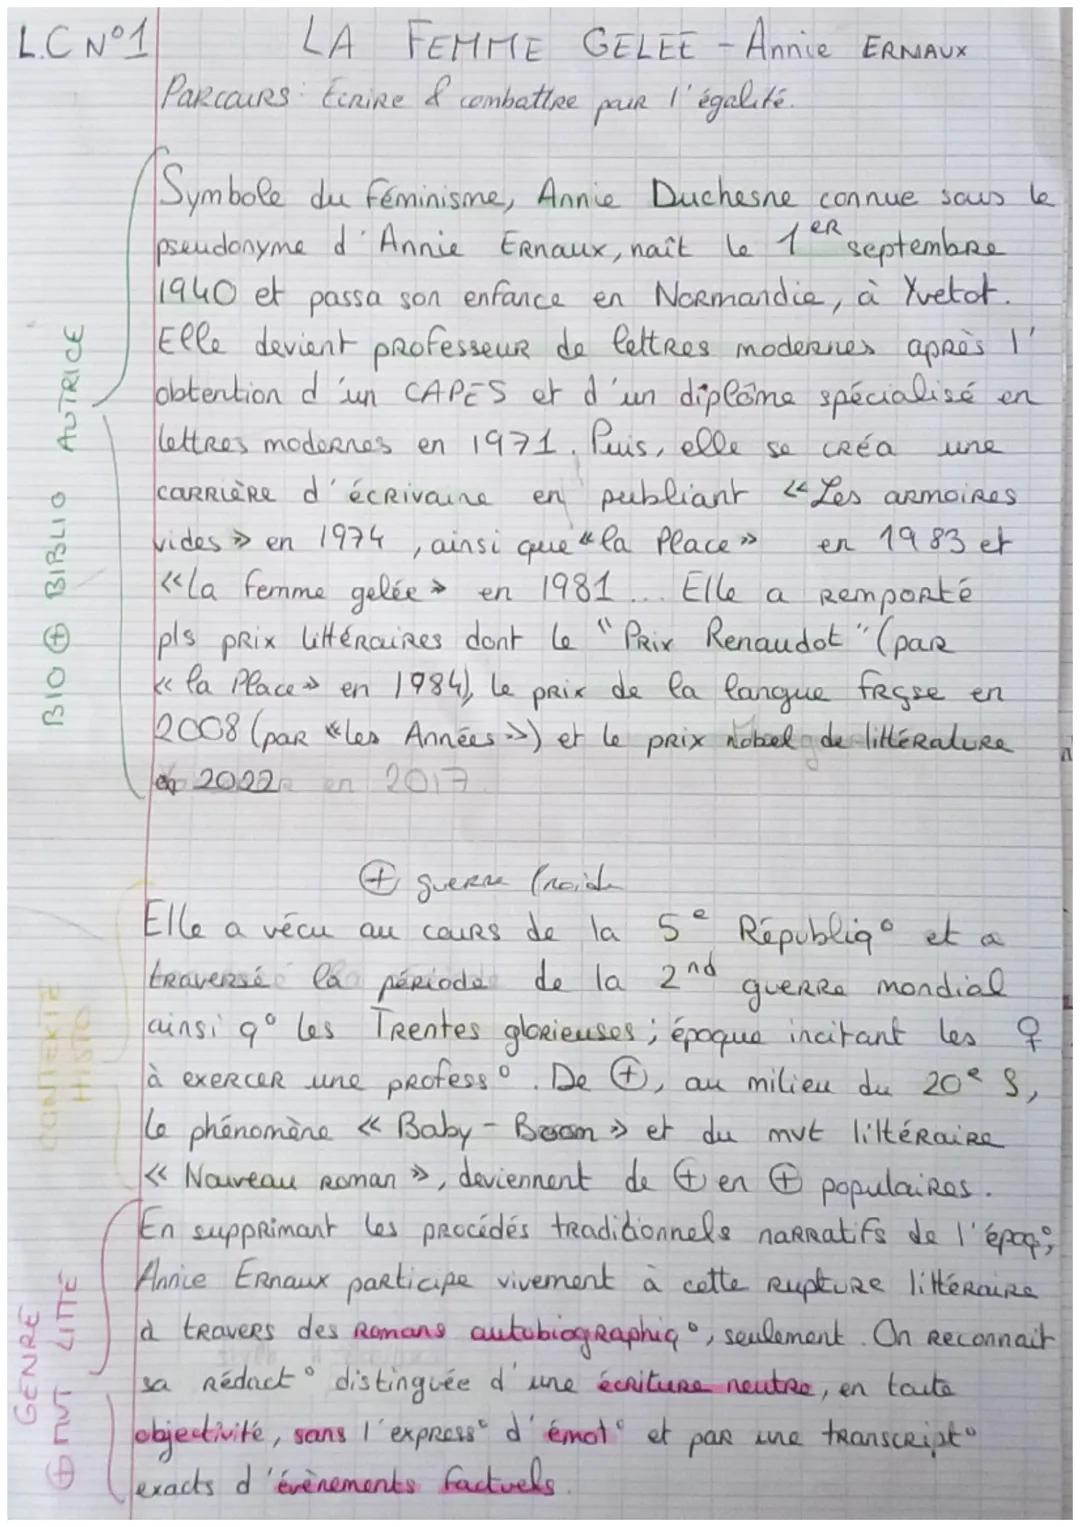 L.C N°1
LA FEMME GELEE - Annie ERNAUX
Parcours : Ecrire & combattre pour l'égalité.
BIO ⊕ BIBLIO AUTRICE
Symbole du féminisme, Annie Duchesne connue sous le
pseudonyme d'Annie Ernaux, naît le 1er septembre
1940 et passa son enfance en Normandie, à Yvetot.
Elle devient professeur de lettres modernes après l'
obtention d'un CAPES et d'un diplôme spécialisé en
lettres modernes en 1971. Puis, elle se créa une
carrière d'écrivaine en publiant « Les armoires
vides » en 1974, ainsi que « la Place » en 1983 et
« la femme gelée » en 1981... Elle a remporté
pls prix littéraires dont le "Prix Renaudot" (par
« la Place » en 1984), le prix de la langue frçse en
2008 (par « les Années ») et le prix nobel de littérature
en 2022 en 2017.
CONTEXTE HISTO
⊕ guerre froide
Elle a vécu au cours de la 5e Républiq° et a
traversé la période de la 2nd guerre mondial
ainsi q° les Trentes glorieuses ; époque incitant les ♀
à exercer une profess°. De ⊕, au milieu du 20e S,
le phénomène « Baby-Boom » et du mvt littéraire
« Nouveau roman », deviennent de ⊕ en ⊕ populaires.
GENRE ⊕ MVT LITTÉ
En supprimant les procédés traditionnels narratifs de l'époq°,
Annie Ernaux participe vivement à cette rupture littéraire
à travers des romans autobiographiq°, seulement. On reconnait
sa rédact° distinguée d'une écriture neutre, en toute
objectivité, sans l'express° d'émot° et par une transcript°
exacts d'évènements factuels.